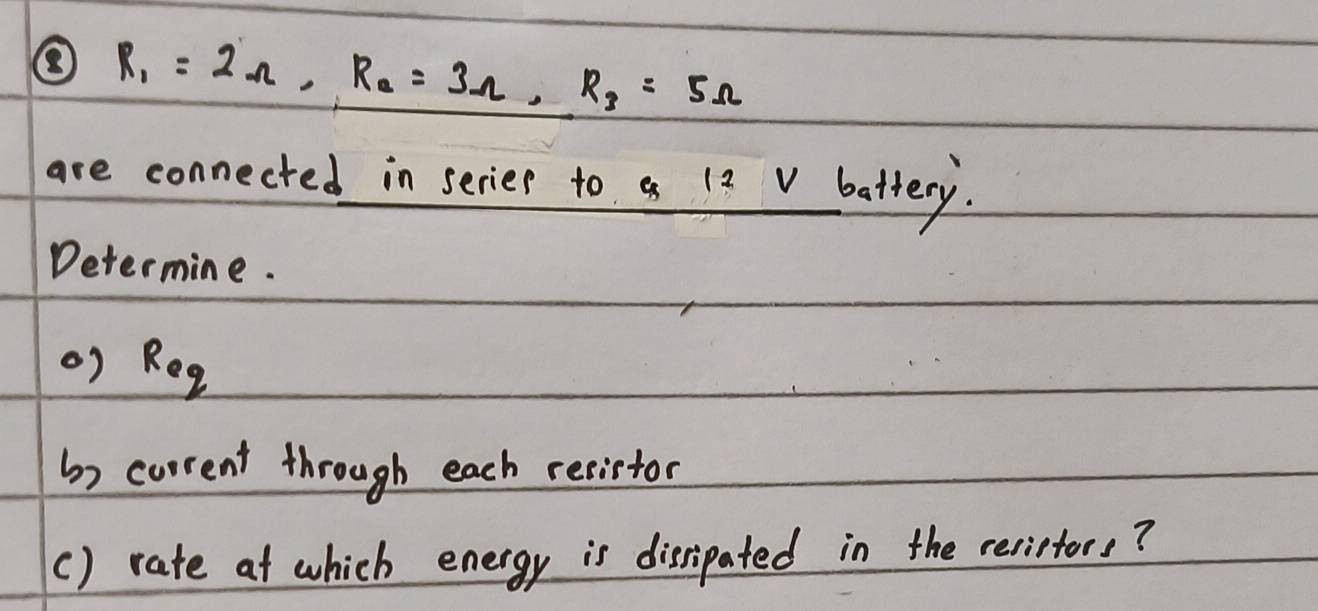 ② R₁ = 2Ω, R₂ = 3Ω, R₃ = 5Ω
are connected in series to a 12 V battery.
Determine.
a) Req
b) current through each resistor
c) rate at which energy is dissipated in the resistors?